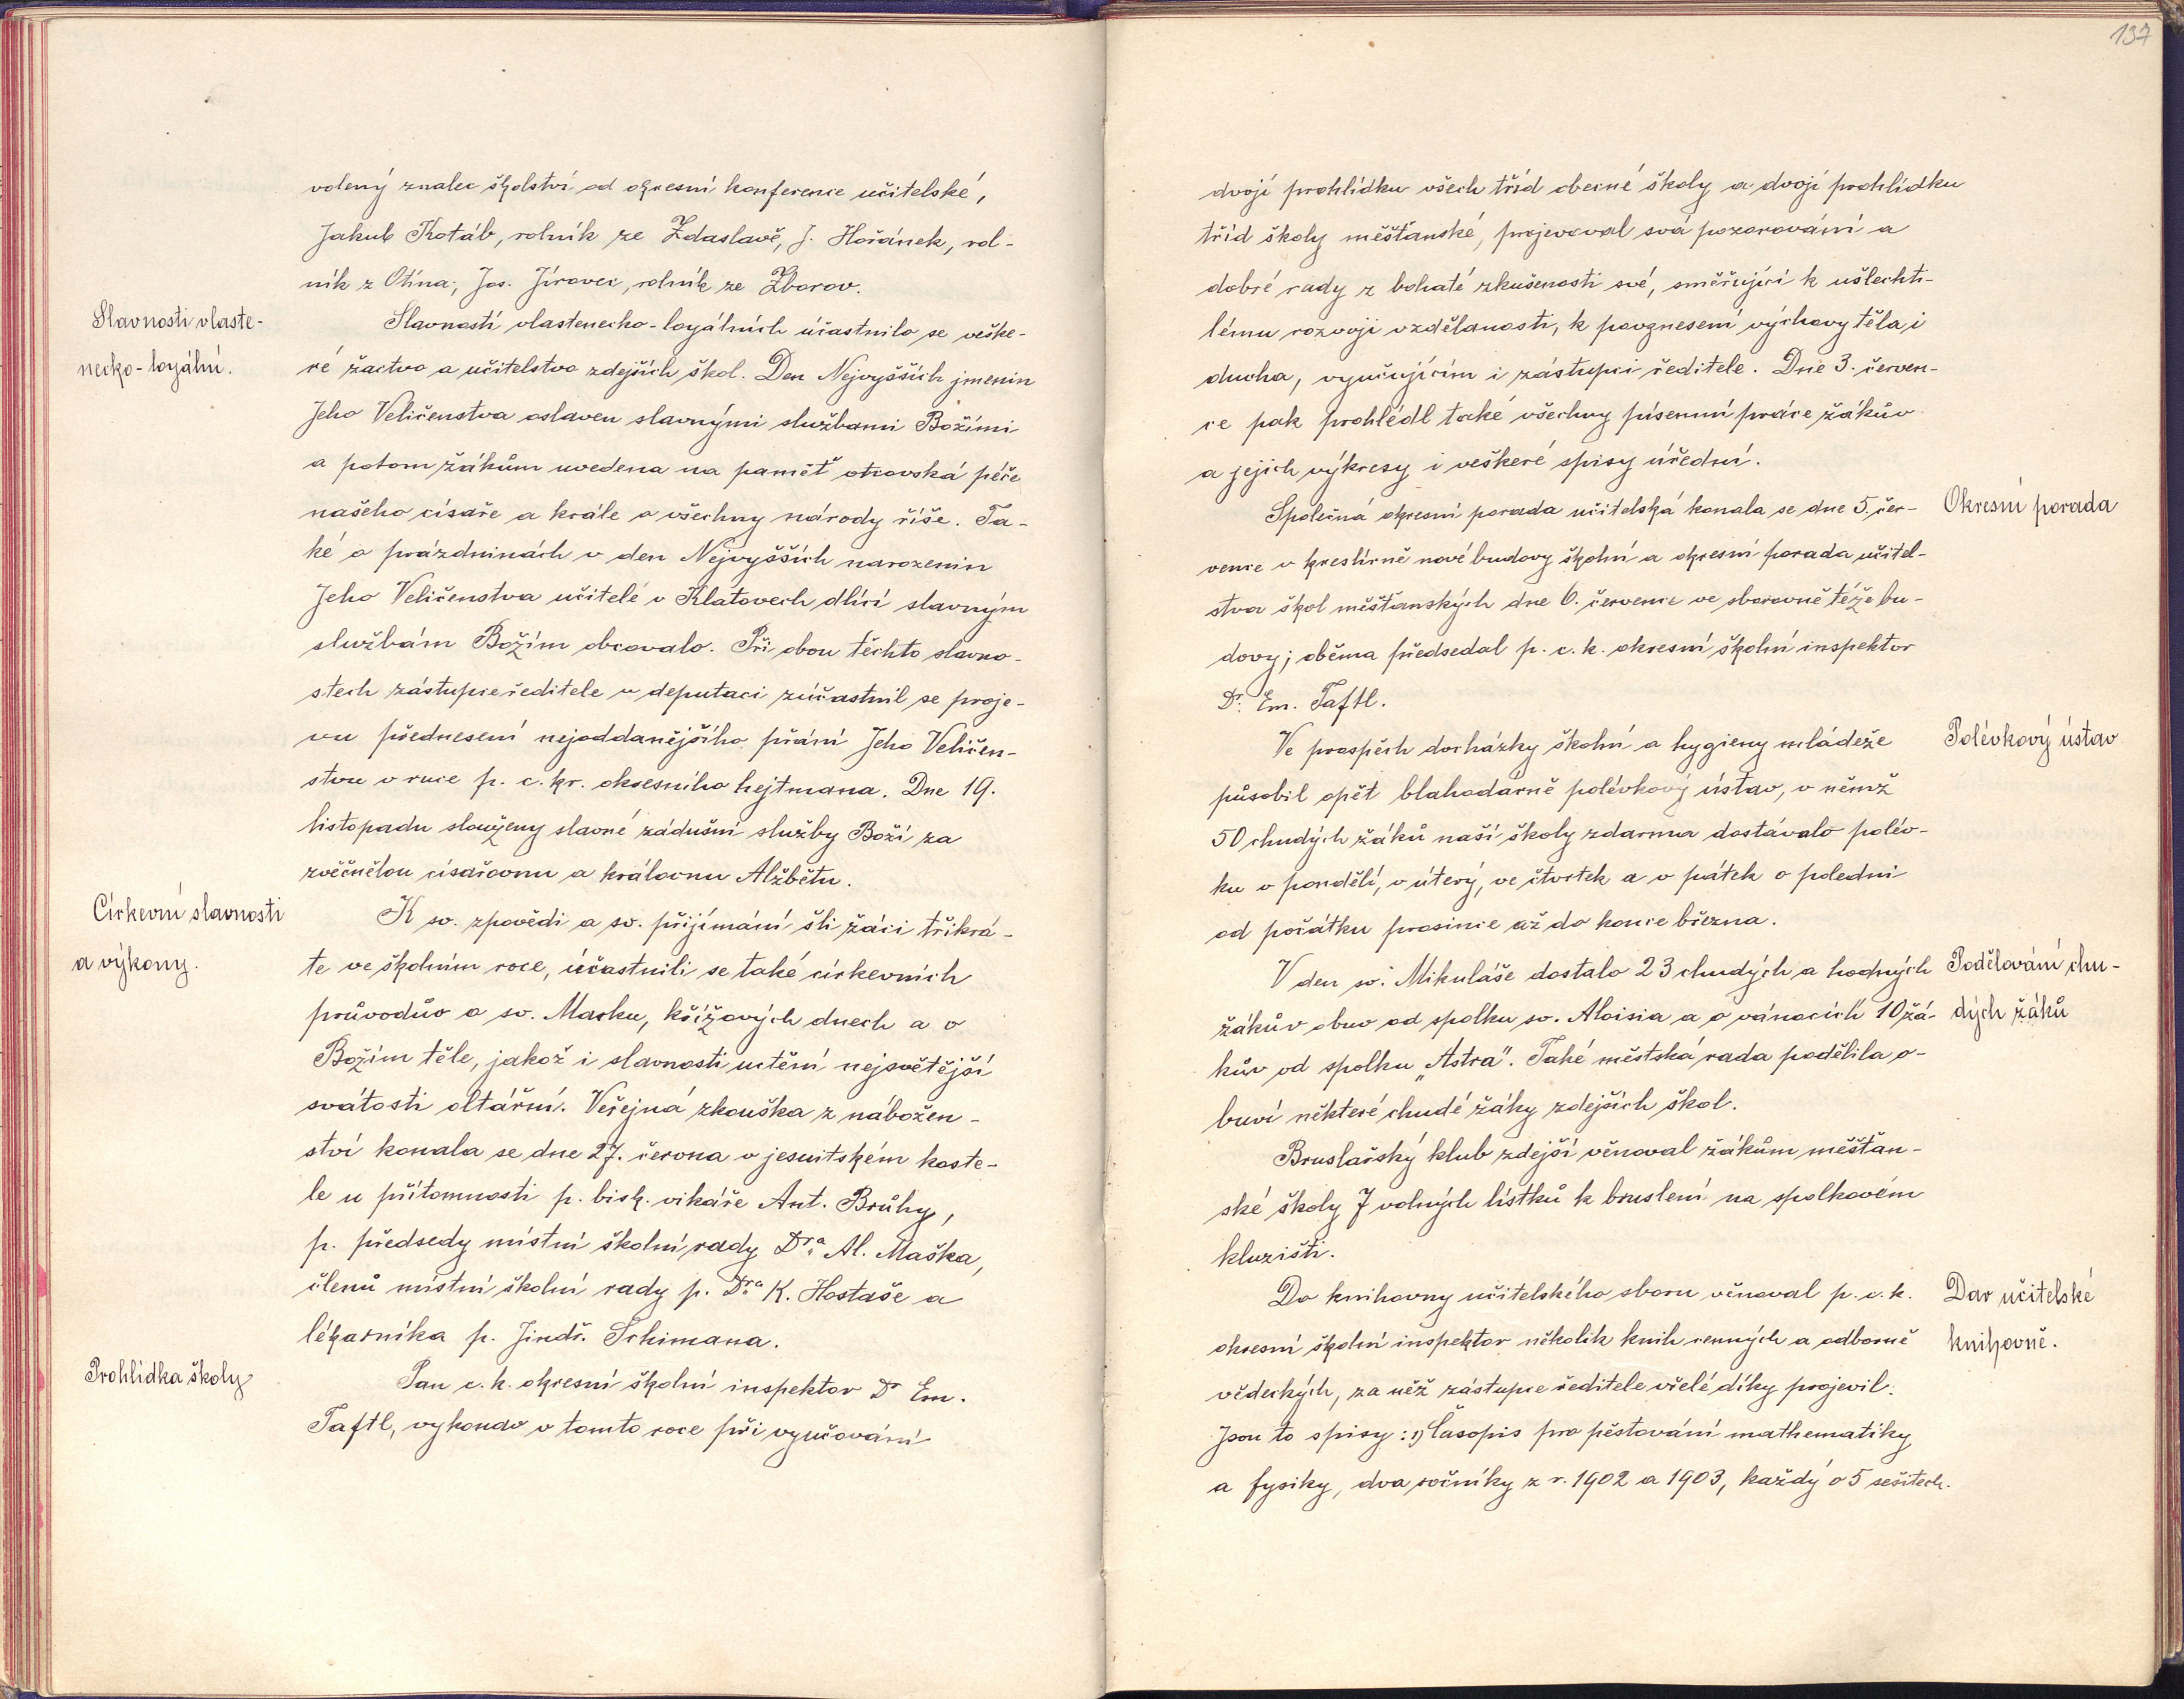 volený znalec školství od okresní konference učitelské,
Jakub Kotáb, rolník ze Zdaslavě, J. Hořánek, rol-
ník z Otína, Jos. Jírovec, rolník ze Zborov.
Slavnosti vlaste-
necko-loyální.
Slavností vlastenecko-loyálních účastnilo se veške-
ré žactvo a učitelstvo zdejších škol. Den Nejvyšších jmenin
Jeho Veličenstva oslaven slavnými službami Božími
a potom žákům uvedena na paměť otcovská péče
našeho císaře a krále o všechny národy říše. Ta-
ké o prázdninách v den Nejvyšších narozenin
Jeho Veličenstva učitelé v Klatovech dlící slavným
službám Božím obcovalo. Při obou těchto slavno-
stech zástupce ředitele v deputaci zúčastnil se proje-
vu přednesení nejoddanějšího přání Jeho Veličen-
stvu v ruce p. c. kr. okresního hejtmana. Dne 19.
listopadu slouženy slavné zádušní služby Boží za
zvěčnělou císařovnu a královnu Alžbětu.
Církevní slavnosti
a výkony.
K sv. zpovědi a sv. přijímání šli žáci třikrá-
te ve školním roce, účastnili se také církevních
průvodův o sv. Marku, křížových dnech a o
Božím těle, jakož i slavnosti uctění nejsvětější
svátosti oltářní. Veřejná zkouška z nábožen-
ství konala se dne 27. června v jesuitském koste-
le u přítomnosti p. bisk. vikáře Ant. Brůhy,
p. předsedy místní školní rady Dra Al. Maška,
členů místní školní rady p. Dra K. Hostaše a
lékárníka p. Jindř. Schimana.
Prohlídka školy
Pan c. k. okresní školní inspektor Dr Em.
Taftl, vykonav v tomto roce při vyučování
137
dvojí prohlídku všech tříd obecné školy a dvojí prohlídku
tříd školy měšťanské, projevoval svá pozorování a
dobré rady z bohaté zkušenosti své, směřující k ušlechti-
lému rozvoji vzdělanosti, k povznesení výchovy těla i
ducha, vyučujícím i zástupci ředitele. Dne 3. červen-
ce pak prohlédl také všechny písemní práce žákův
a jejich výkresy i veškeré spisy úřední.
Společná okresní porada učitelská konala se dne 5. čer-
Okresní porada
vence v kreslírně nové budovy školní a okresní porada učitel-
stva škol měšťanských dne 6. července ve sborovně téže bu-
dovy; oběma předsedal p. c. k. okresní školní inspektor
Dr. Em. Taftl.
Ve prospěch docházky školní a hygieny mládeže
Polévkový ústav
působil opět blahodárně polévkový ústav, v němž
50 chudých žáků naší školy zdarma dostávalo polév-
ku v pondělí, v úterý, ve čtvrtek a v pátek o poledni
od počátku prosince až do konce března.
V den sv. Mikuláše dostalo 23 chudých a hodných
Podělování chu-
žákův obuv od spolku sv. Aloisia a o vánocích 10 žá-
dých žáků
kův od spolku „Astra". Také městská rada podělila o-
buví některé chudé žáky zdejších škol.
Bruslařský klub zdejší věnoval žákům měšťan-
ské školy 7 volných lístků k bruslení na spolkovém
kluzišti.
Do knihovny učitelského sboru věnoval p. c. k.
Dar učitelské
okresní školní inspektor několik knih cenných a odborně
knihovně.
vědeckých, za něž zástupce ředitele vřelé díky projevil.
Jsou to spisy: 1) Časopis pro pěstování mathematiky
a fysiky, dva ročníky z r. 1902 a 1903, každý o 5 sešitech.